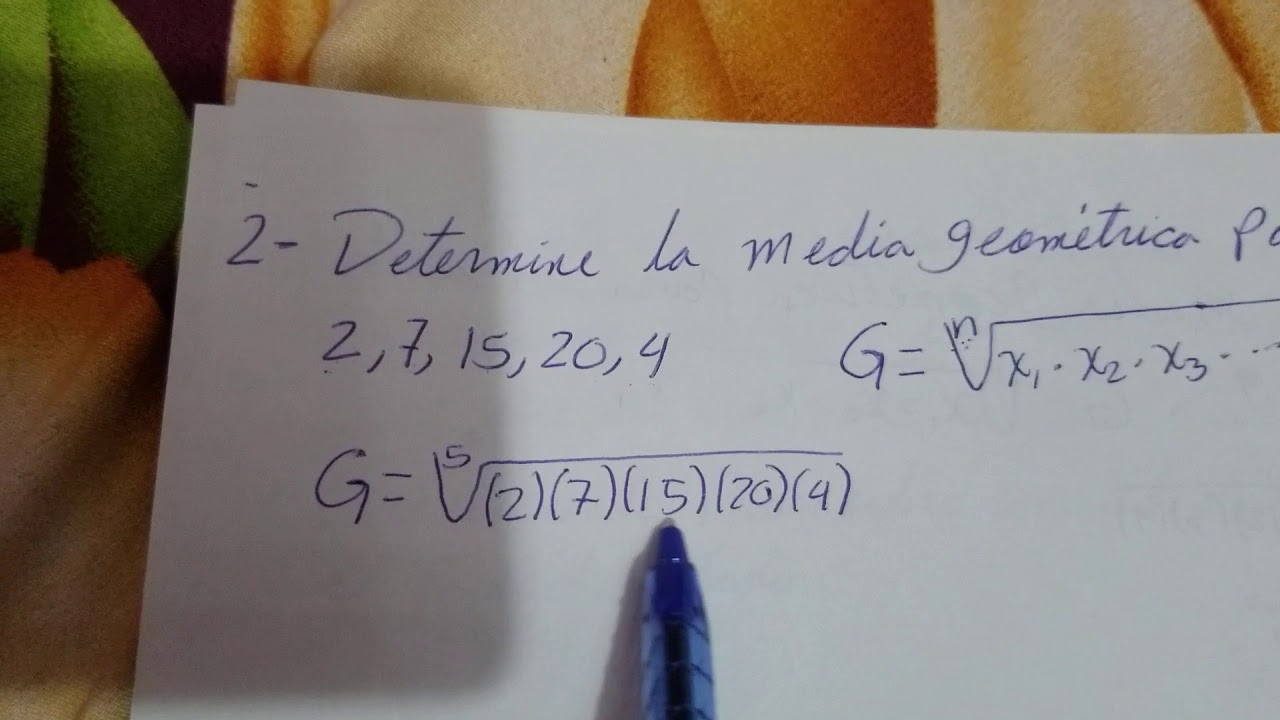 2- Determine la media geométrica
2, 7, 15, 20, 4
G = ⁿ√x₁ · x₂ · x₃ · ...
G = ⁵√(2)(7)(15)(20)(4)